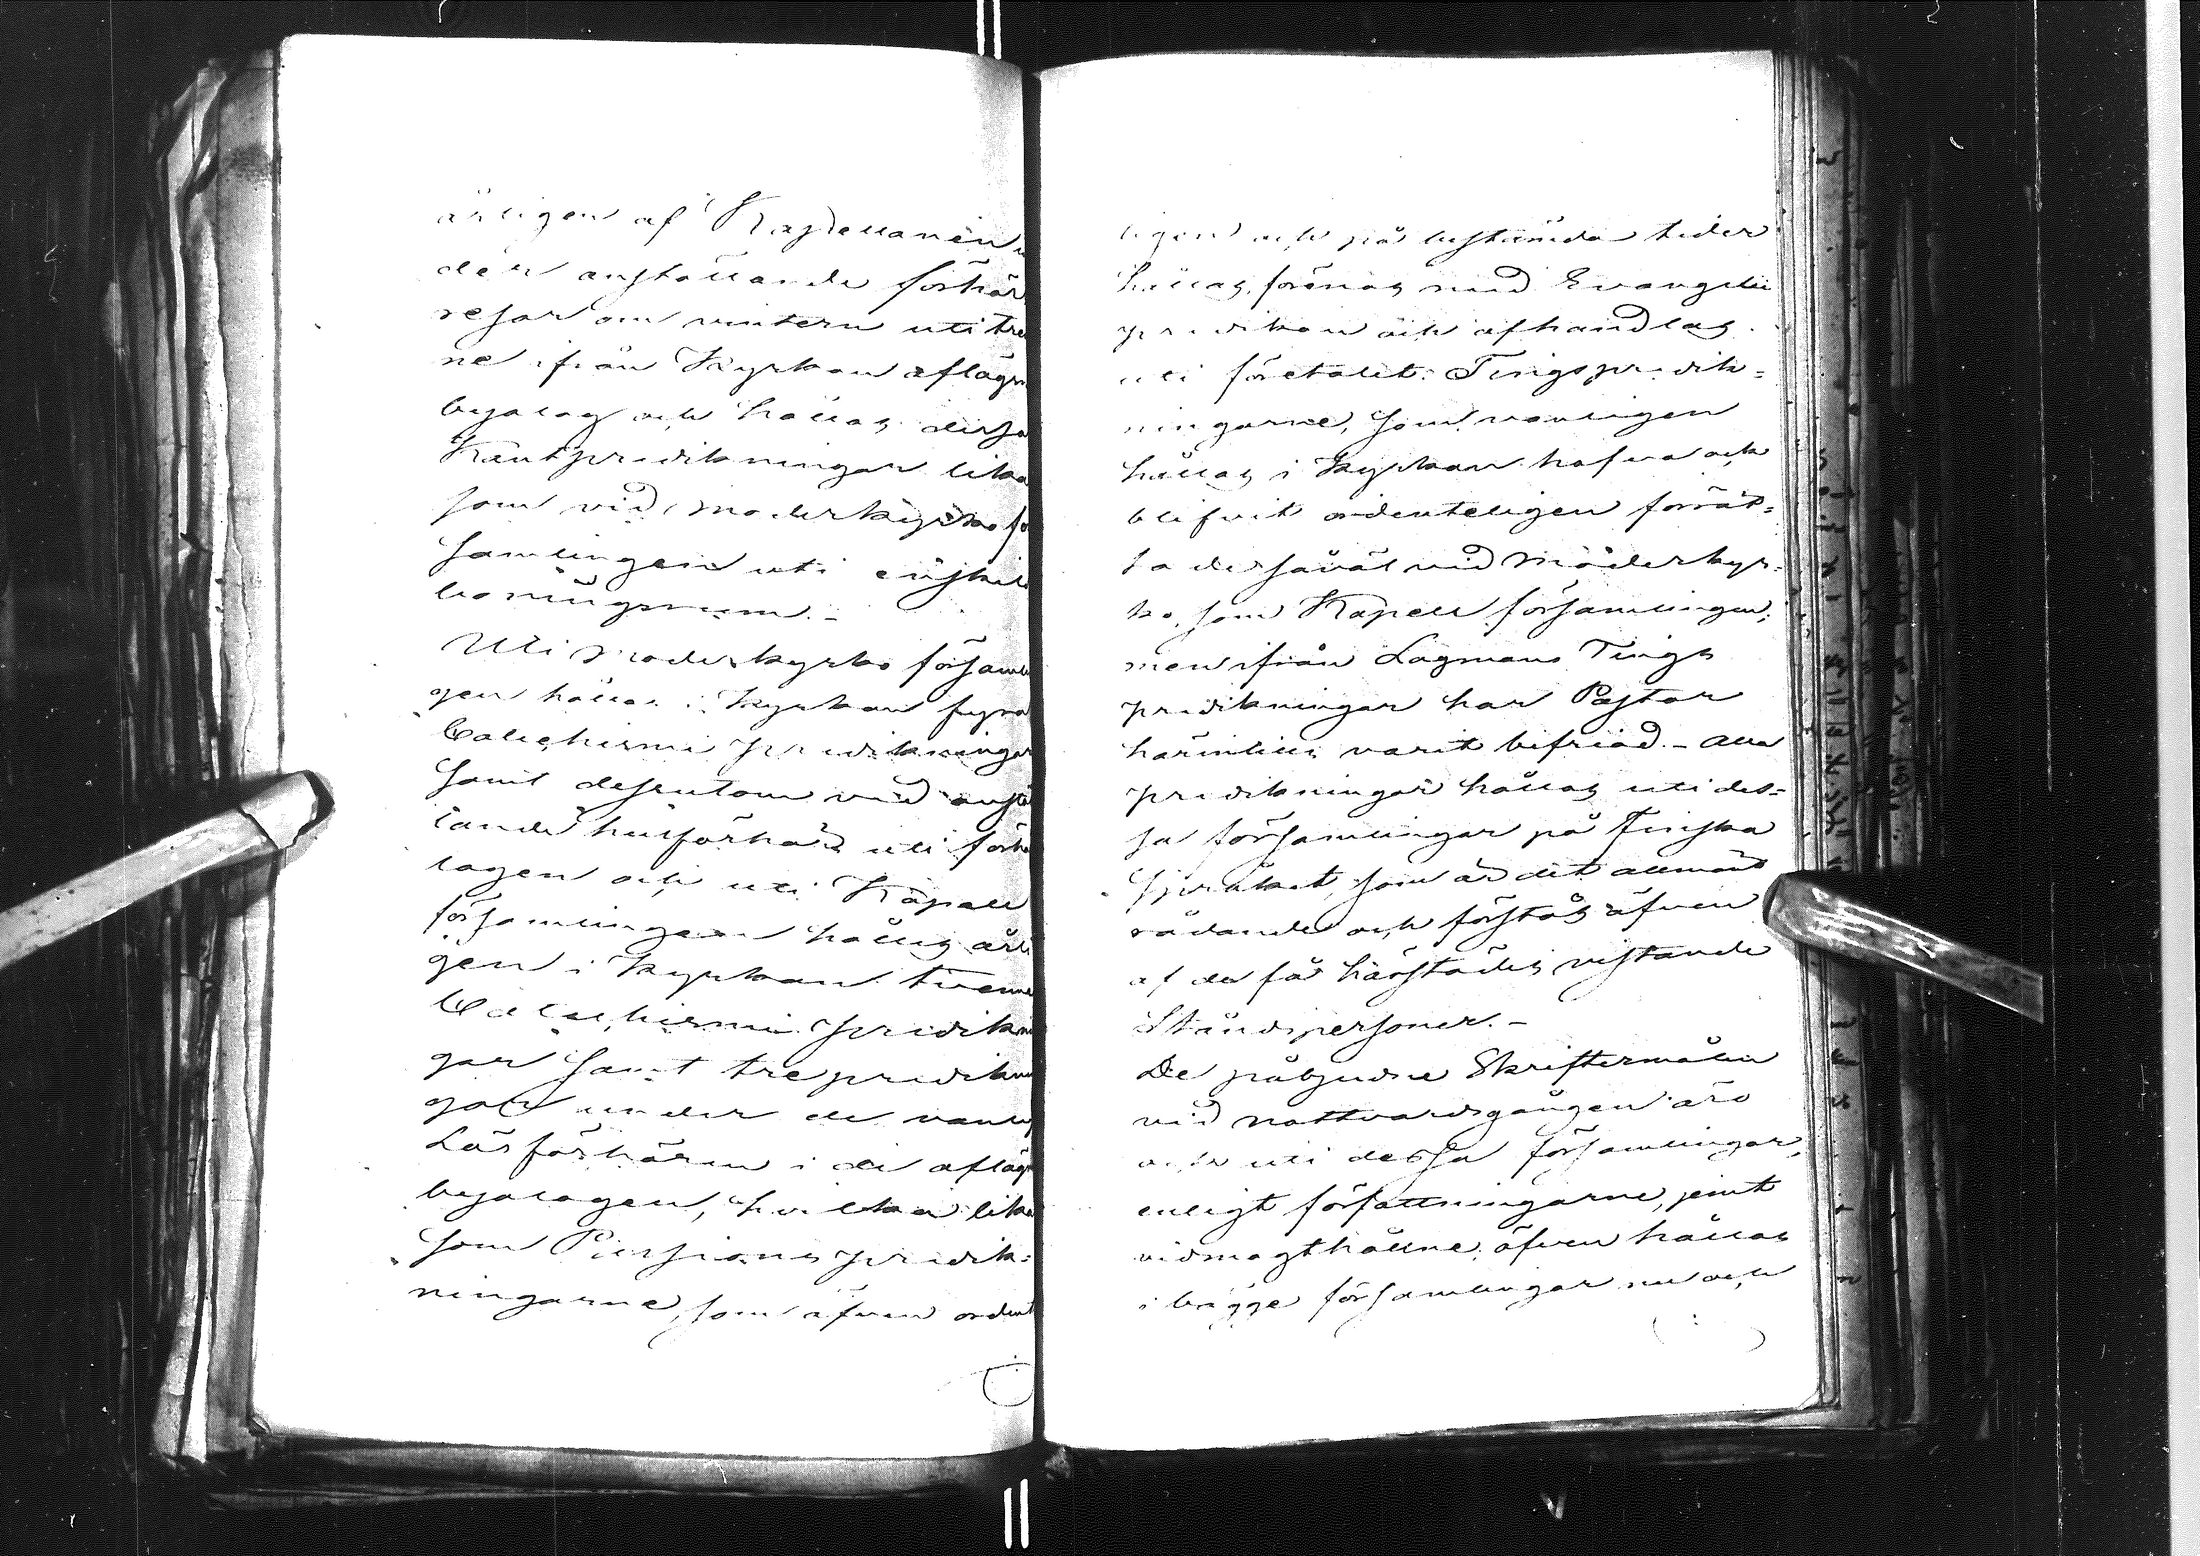 årligen af Kapellanen u
der anställande förhör
resor om vintern uti tre
ne ifrån Kyrkan aflägs
byalag och hållas dessa
Käntpredikningar lika
som vid moderkyrko fö
samlingen uti enskil
boningsrum. -
Uti Moderkyrko församl
gen hållas i Kyrkan fyra
Catechismi predikningar
samt desutom vid anstä
lande husförhör uti förh
lagen och uti Kapell
församlingen hållas årli
gen i Kyrkan tvenne
Catechismi predikni
gar samt tre predikni
gar under de vanlig
Läsförhören i de afläg
byalagen, hvilka lika
som Passions predik=
ningarne, som äfven ordent
ligen och på bestämda tider
hållas, förenas med Evangelii
predikan och afhandlas
uti företalet. Tingspredik=
ningarne, som vanligen
hållas i Kyrkan hafva ock
blifvit ordenteligen förrät=
tade såväl vid Moderkyr=
ko, som Kapell församlingen;
men ifrån Lagmans Tings
predikningar har Pastor
härintills varit befriad. - Alla
predikningar hållas uti des=
sa församlingar på Finska
Språket, som är det allmänt
rådande och förstås äfven
af de få härstädes vistande
Ståndspersoner. -
De påbjudne Skriftermålen
vid nattvardsgången äro
ock uti dessa församlingar,
enligt författningarne, jemt
vidmagthållne, äfven hållas
i bägge församlingar nu och